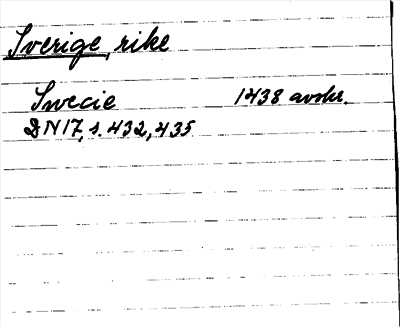 Sverige, rike
Swecie 1438 avskr.
DN17, s. 432, 435